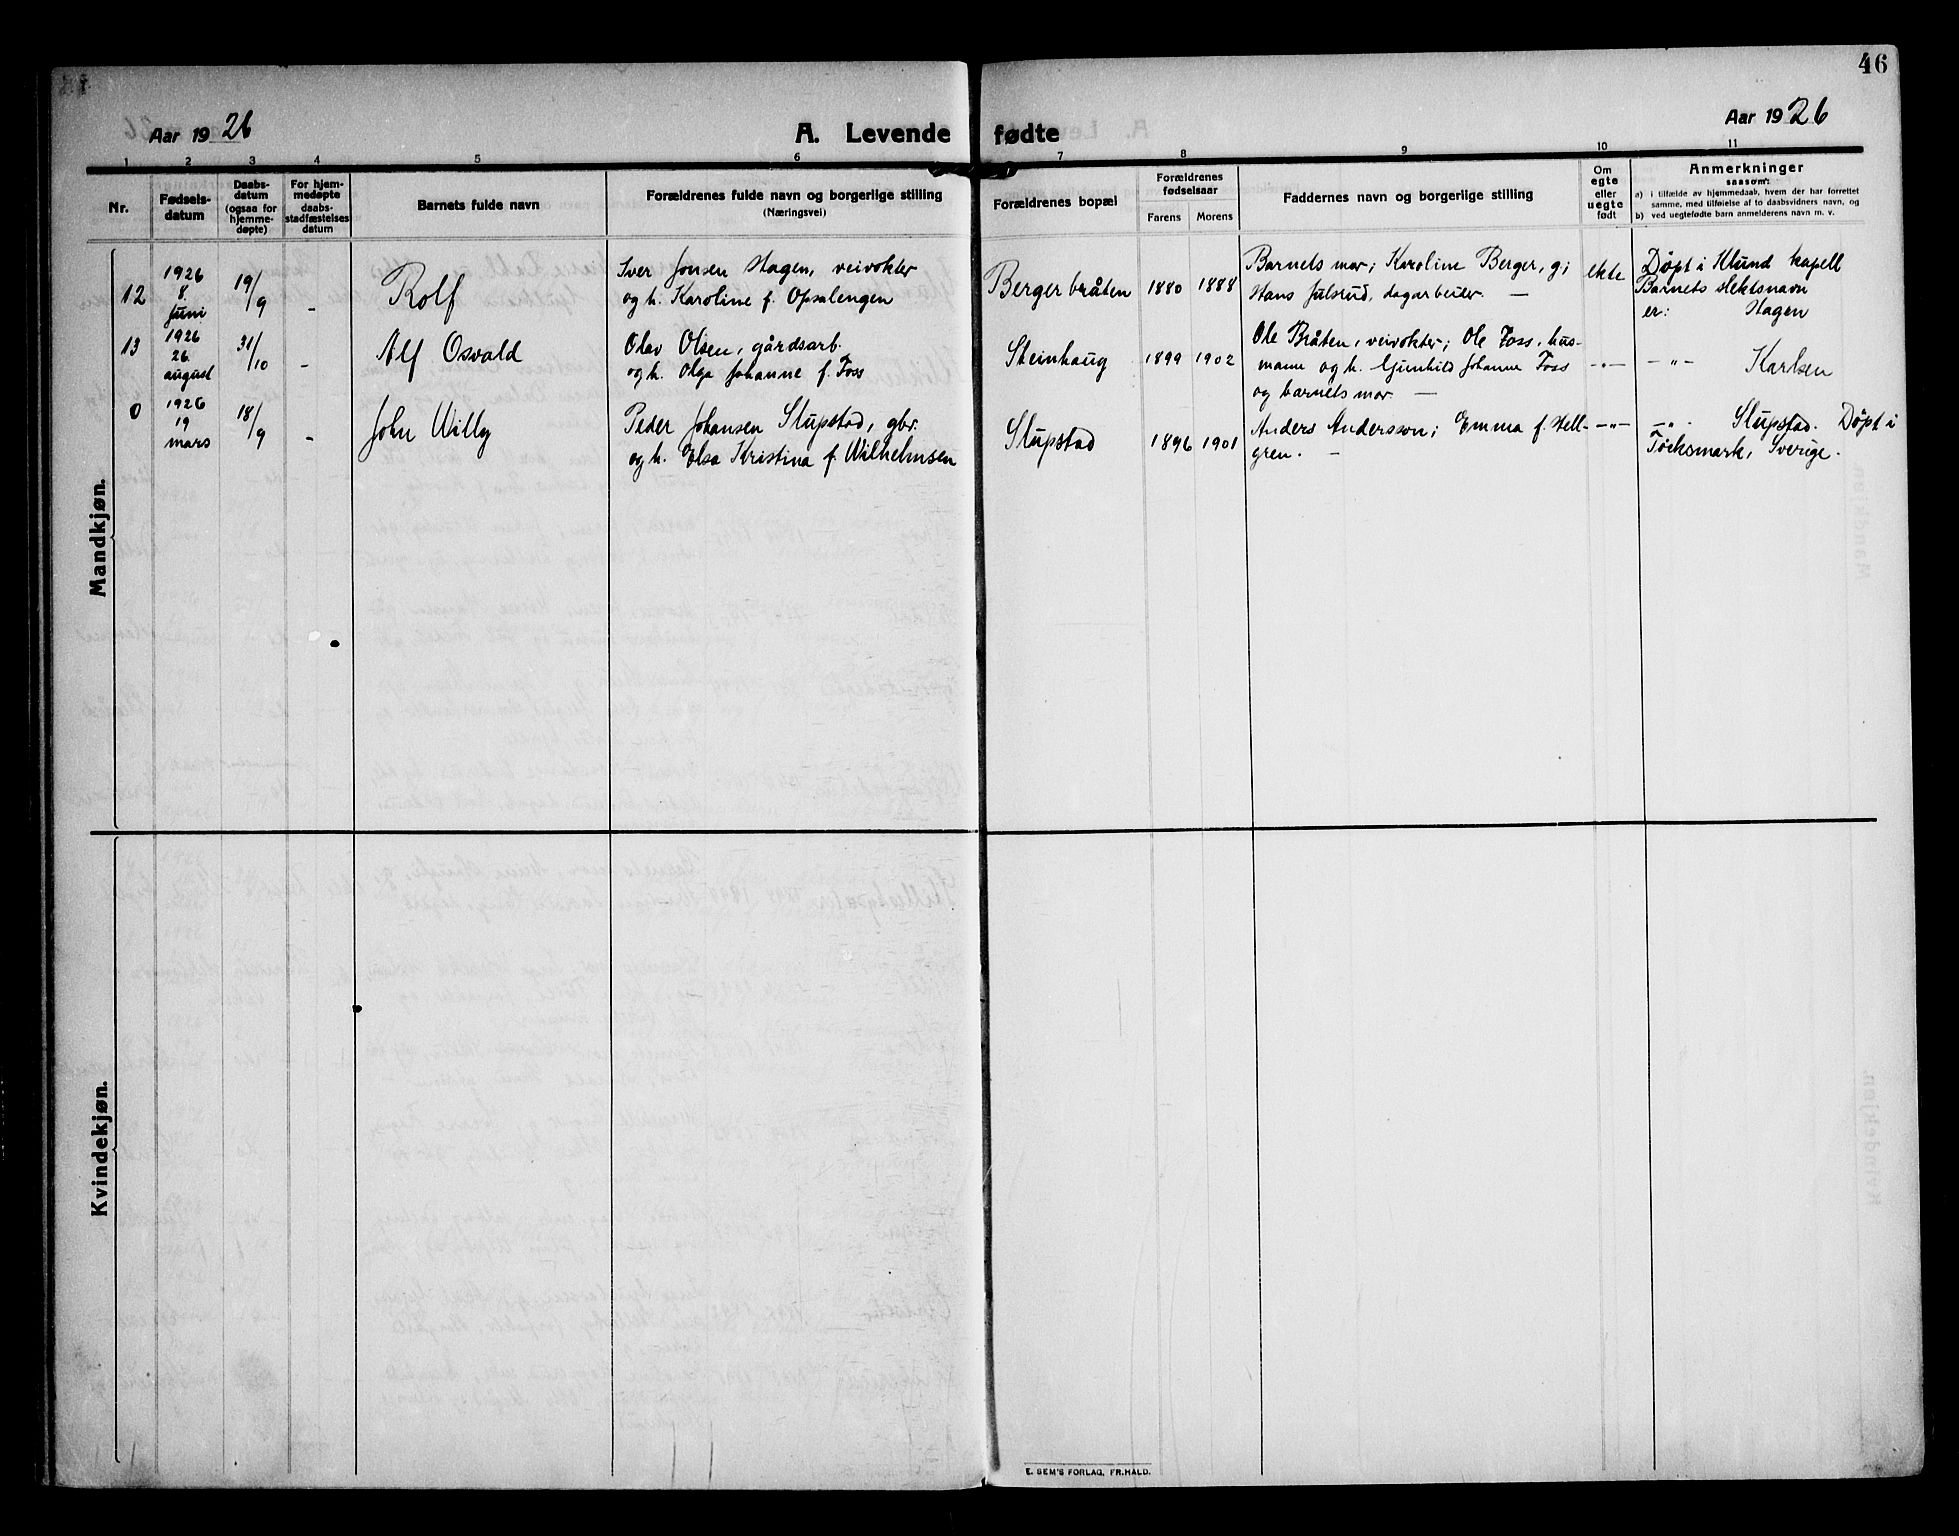 46
Aar 1926
A. Levende
fødte
Aar 1926
1 2 3 4 5 6 7 8 9 10 11
Nr.
Fødsels-
datum
Daabs-
datum
(ogsaa for
hjemme-
døpte)
For hjem-
medøpte
daabs-
stadfæstelses
datum
Barnets fulde navn
Forældrenes fulde navn og borgerlige stilling
(Næringsvei)
Forældrenes bopæl
Forældrenes
fødselsaar
Farens Morens
Faddernes navn og borgerlige stilling
Om
egte
eller
uegte
født
Anmerkninger
saasom:
a) i tilfælde av hjemmedaab, hvem der har forrettet
samme, med tilføielse af to daabsvidners navn, og
b) ved uegtefødte barn anmelderens navn m. v.
Mandkjøn.
12
1926
8.
juni
19/9
-
Rolf
Iver Jonsen Hagen, veivokter
og h. Karoline f. Opsalengen
Bergerbråten
1880 1888
Barnets mor; Karoline Berger, g;
Hans Julsrud, dagarbeider. —
ekte
Døpt i Hlund kapell
Barnets slektsnavn
er: Hagen
13
1926
26
august
31/10
-
Alf Osvald
Olav Olsen, gårdsarb.
og h. Olga Johanne f. Foss
Steinhaug
1899 1902
Ole Bråten, veivokter; Ole Foss, hus-
mann og h. Gunhild Johanne Foss
og barnets mor. —
—"—
—"— Karlsen
0
1926
19
mars
18/9
-
John Willy
Peder Johansen Slupstad, gbr.
og h. Elsa Kristina f. Wilhelmsen
Slupstad
1896 1901
Anders Andersson; Emma f. Hell-
gren. —
—"—
—"— Slupstad. Døpt i
Töcksmark, Sverige.
Kvindekjøn.
E. SEM'S FORLAG, FR.HALD.